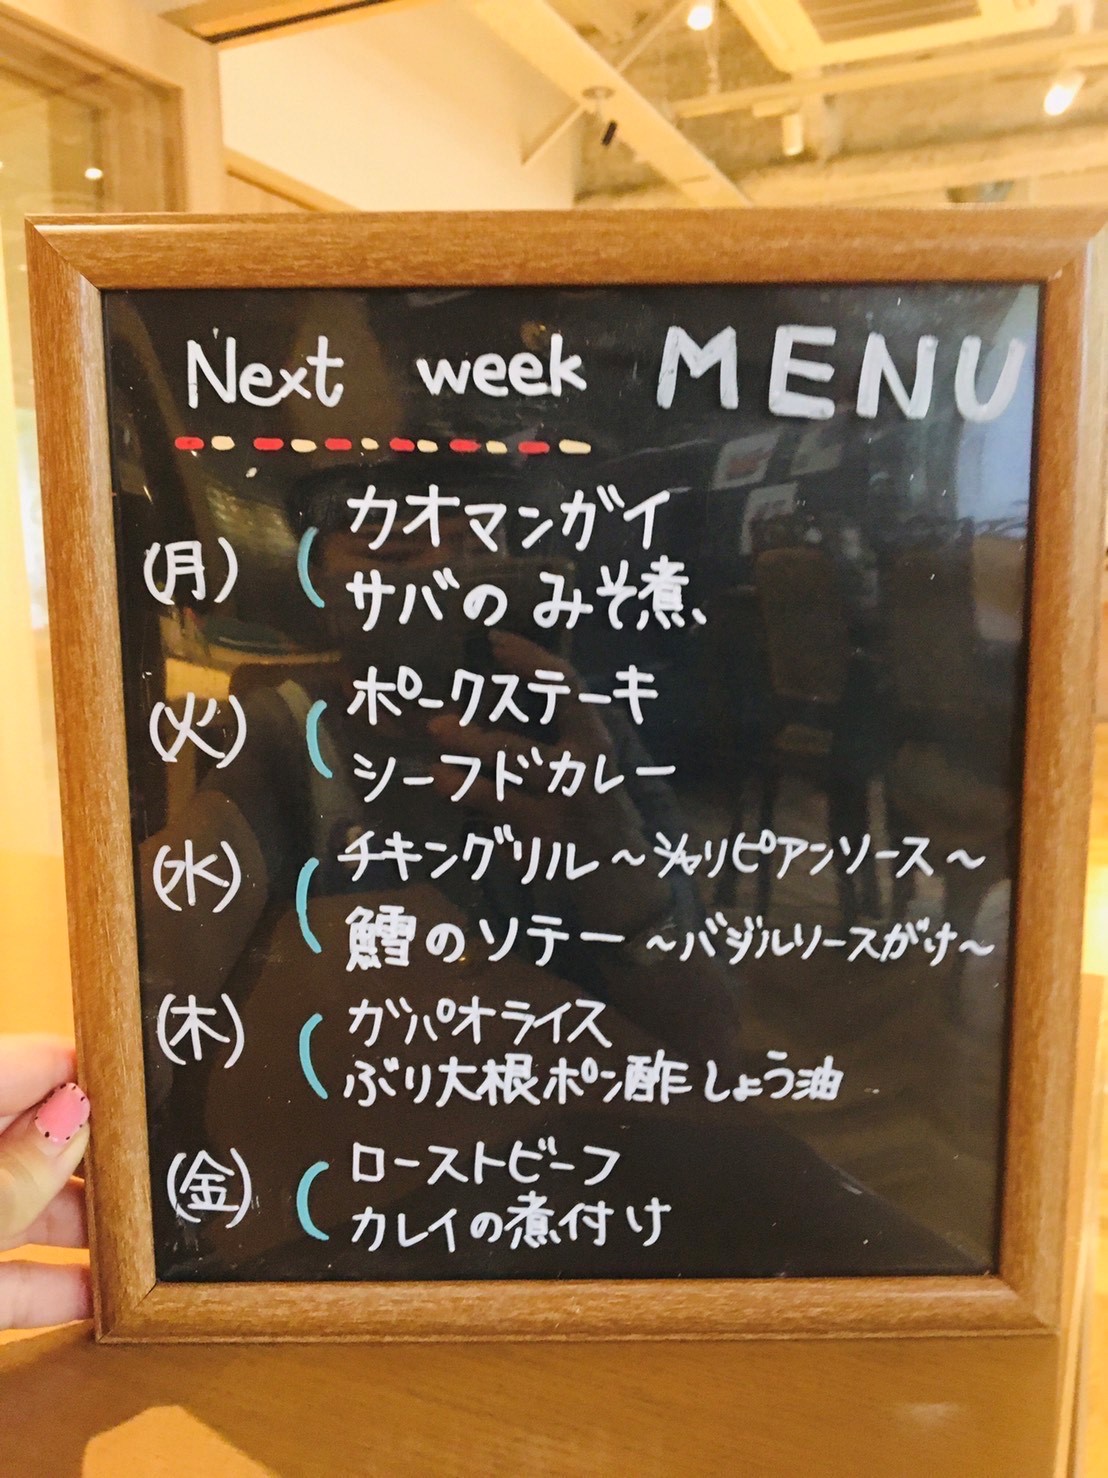 Next week MENU
(月)
カオマンガイ
サバのみそ煮、
(火)
ポークステーキ
シーフドカレー
(水)
チキングリル～シャリピアンソース～
鱈のソテー～バジルソースがけ～
(木)
ガパオライス
ぶり大根ポン酢しょう油
(金)
ローストビーフ
カレイの煮付け